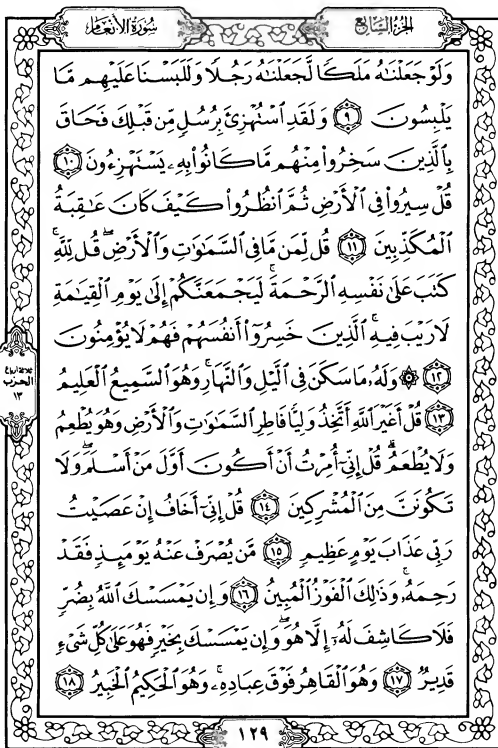 سُورَةُ الأَنْعَام
الجُزْءُ السَّابِعُ
وَلَوْ جَعَلْنَٰهُ مَلَكًا لَّجَعَلْنَٰهُ رَجُلًا وَلَلَبَسْنَا عَلَيْهِم مَّا
يَلْبِسُونَ ٩ وَلَقَدِ ٱسْتُهْزِئَ بِرُسُلٍ مِّن قَبْلِكَ فَحَاقَ
بِٱلَّذِينَ سَخِرُوا۟ مِنْهُم مَّا كَانُوا۟ بِهِۦ يَسْتَهْزِءُونَ ١٠
قُلْ سِيرُوا۟ فِى ٱلْأَرْضِ ثُمَّ ٱنظُرُوا۟ كَيْفَ كَانَ عَٰقِبَةُ
ٱلْمُكَذِّبِينَ ١١ قُل لِّمَن مَّا فِى ٱلسَّمَٰوَٰتِ وَٱلْأَرْضِ ۖ قُل لِّلَّهِ ۚ
كَتَبَ عَلَىٰ نَفْسِهِ ٱلرَّحْمَةَ ۚ لَيَجْمَعَنَّكُمْ إِلَىٰ يَوْمِ ٱلْقِيَٰمَةِ
لَا رَيْبَ فِيهِ ۚ ٱلَّذِينَ خَسِرُوٓا۟ أَنفُسَهُمْ فَهُمْ لَا يُؤْمِنُونَ
١٢ ۞ وَلَهُۥ مَا سَكَنَ فِى ٱلَّيْلِ وَٱلنَّهَارِ ۚ وَهُوَ ٱلسَّمِيعُ ٱلْعَلِيمُ
١٣ قُلْ أَغَيْرَ ٱللَّهِ أَتَّخِذُ وَلِيًّا فَاطِرِ ٱلسَّمَٰوَٰتِ وَٱلْأَرْضِ وَهُوَ يُطْعِمُ
وَلَا يُطْعَمُ ۗ قُلْ إِنِّىٓ أُمِرْتُ أَنْ أَكُونَ أَوَّلَ مَنْ أَسْلَمَ ۖ وَلَا
تَكُونَنَّ مِنَ ٱلْمُشْرِكِينَ ١٤ قُلْ إِنِّىٓ أَخَافُ إِنْ عَصَيْتُ
رَبِّى عَذَابَ يَوْمٍ عَظِيمٍ ١٥ مَّن يُصْرَفْ عَنْهُ يَوْمَئِذٍ فَقَدْ
رَحِمَهُۥ ۚ وَذَٰلِكَ ٱلْفَوْزُ ٱلْمُبِينُ ١٦ وَإِن يَمْسَسْكَ ٱللَّهُ بِضُرٍّ
فَلَا كَاشِفَ لَهُۥٓ إِلَّا هُوَ ۖ وَإِن يَمْسَسْكَ بِخَيْرٍ فَهُوَ عَلَىٰ كُلِّ شَىْءٍ
قَدِيرٌ ١٧ وَهُوَ ٱلْقَاهِرُ فَوْقَ عِبَادِهِۦ ۚ وَهُوَ ٱلْحَكِيمُ ٱلْخَبِيرُ ١٨
ثلاثة أرباع
الحزب
١٣
١٢٩